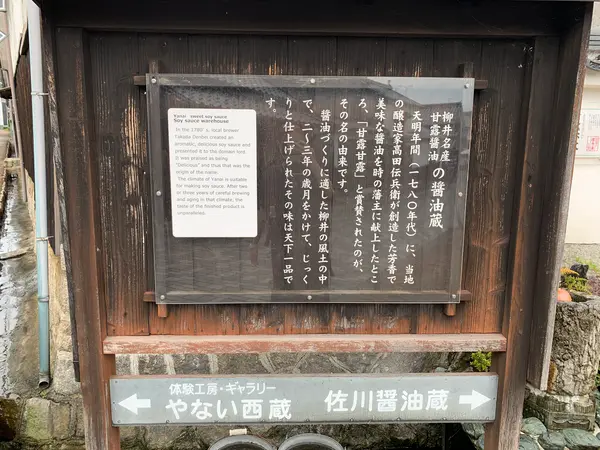 柳井名産
甘露醤油の醤油蔵
天明年間(一七八〇年代)に、当地
の醸造家高田伝兵衛が創造した芳香で
美味な醤油を時の藩主に献上したとこ
ろ、「甘露甘露」と賞賛されたのが、
その名の由来です。
醤油づくりに適した柳井の風土の中
で、二〜三年の歳月をかけて、じっく
りと仕上げられたその味は天下一品で
す。
Yanai sweet soy sauce
Soy sauce warehouse
In the 1780's, local brewer
Takata Denbei created an
aromatic, delicious soy sauce and
presented it to the domain lord.
It was praised as being
"Delicious" and thus that was the
origin of the name.
The climate of Yanai is suitable
for making soy sauce. After two
or three years of careful brewing
and aging in that climate, the
taste of the finished product is
unparalleled.
体験工房・ギャラリー
やない西蔵
佐川醤油蔵